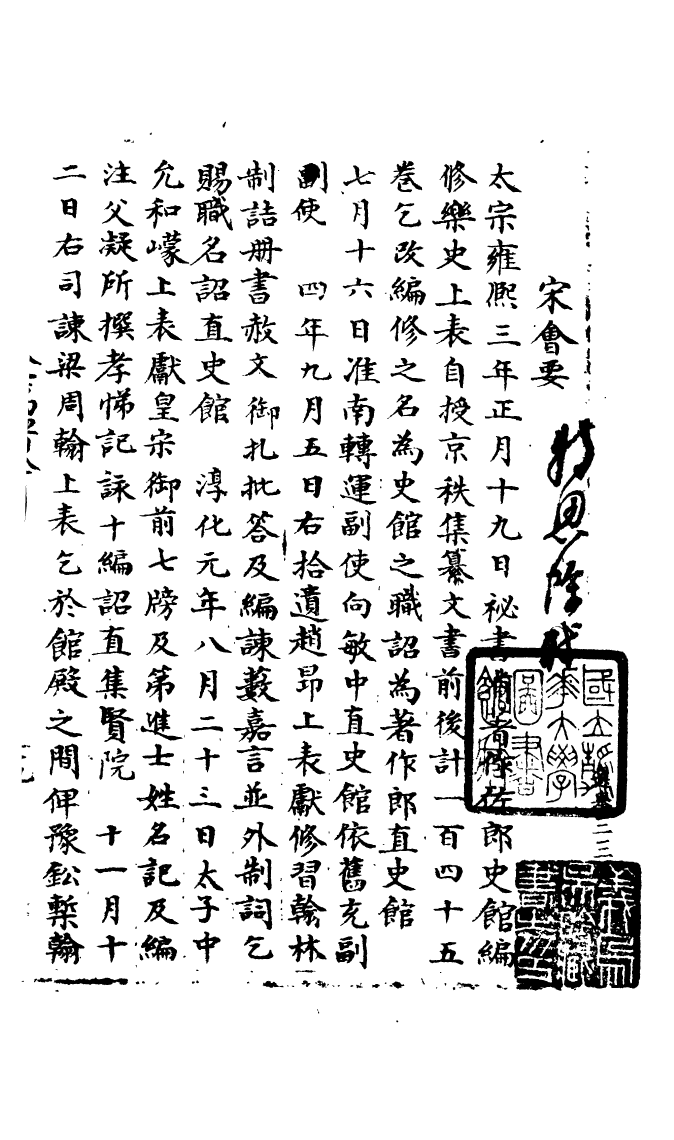 宋會要
特恩除職
太宗雍熙三年正月十九日祕書省著作佐郎史館編
修樂史上表自授京秩集纂文書前後計一百四十五
卷乞改編修之名為史館之職詔為著作郎直史館
七月十六日淮南轉運副使向敏中直史館依舊充副
副使　四年九月五日右拾遺趙昂上表獻修習翰林
制詰册書赦文御扎批答及編諫藪嘉言並外制詞乞
賜職名詔直史館　淳化元年八月二十三日太子中
允和㠓上表獻皇宋御前七牓及第進士姓名記及編
注父凝所撰孝悌記詠十編詔直集賢院　十一月十
二日右司諫梁周翰上表乞於館殿之間俾豫鈆槧翰
國立
華大學
圖書